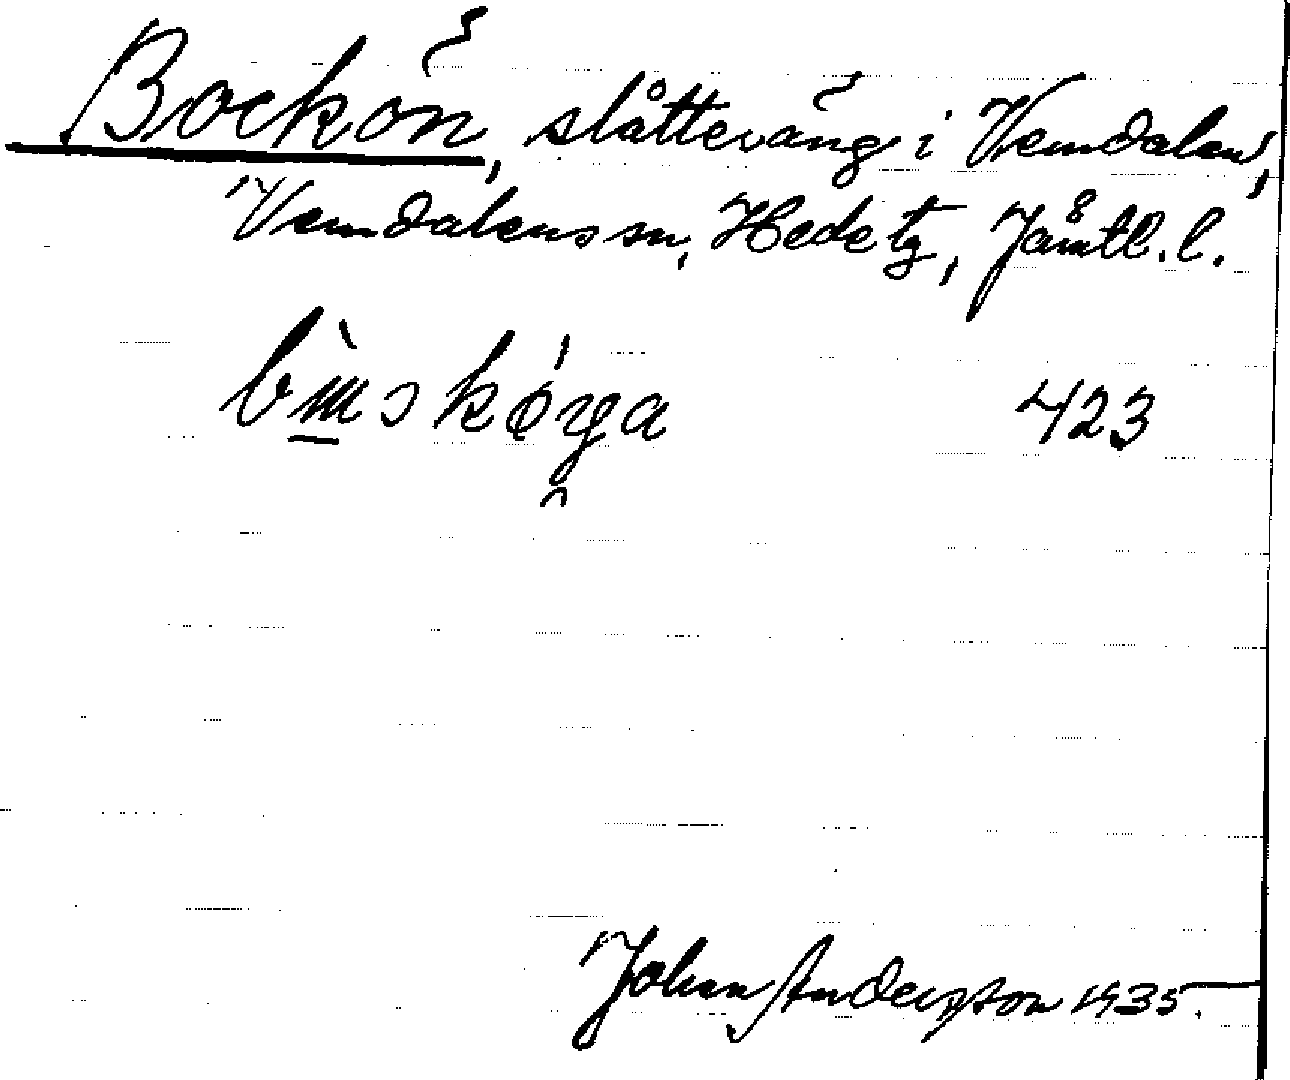 Bockön, slåttevång i Vemdalen,
Vemdalens sn, Hede tg, Jämtl. l.
423
Johan Anderson 1935.